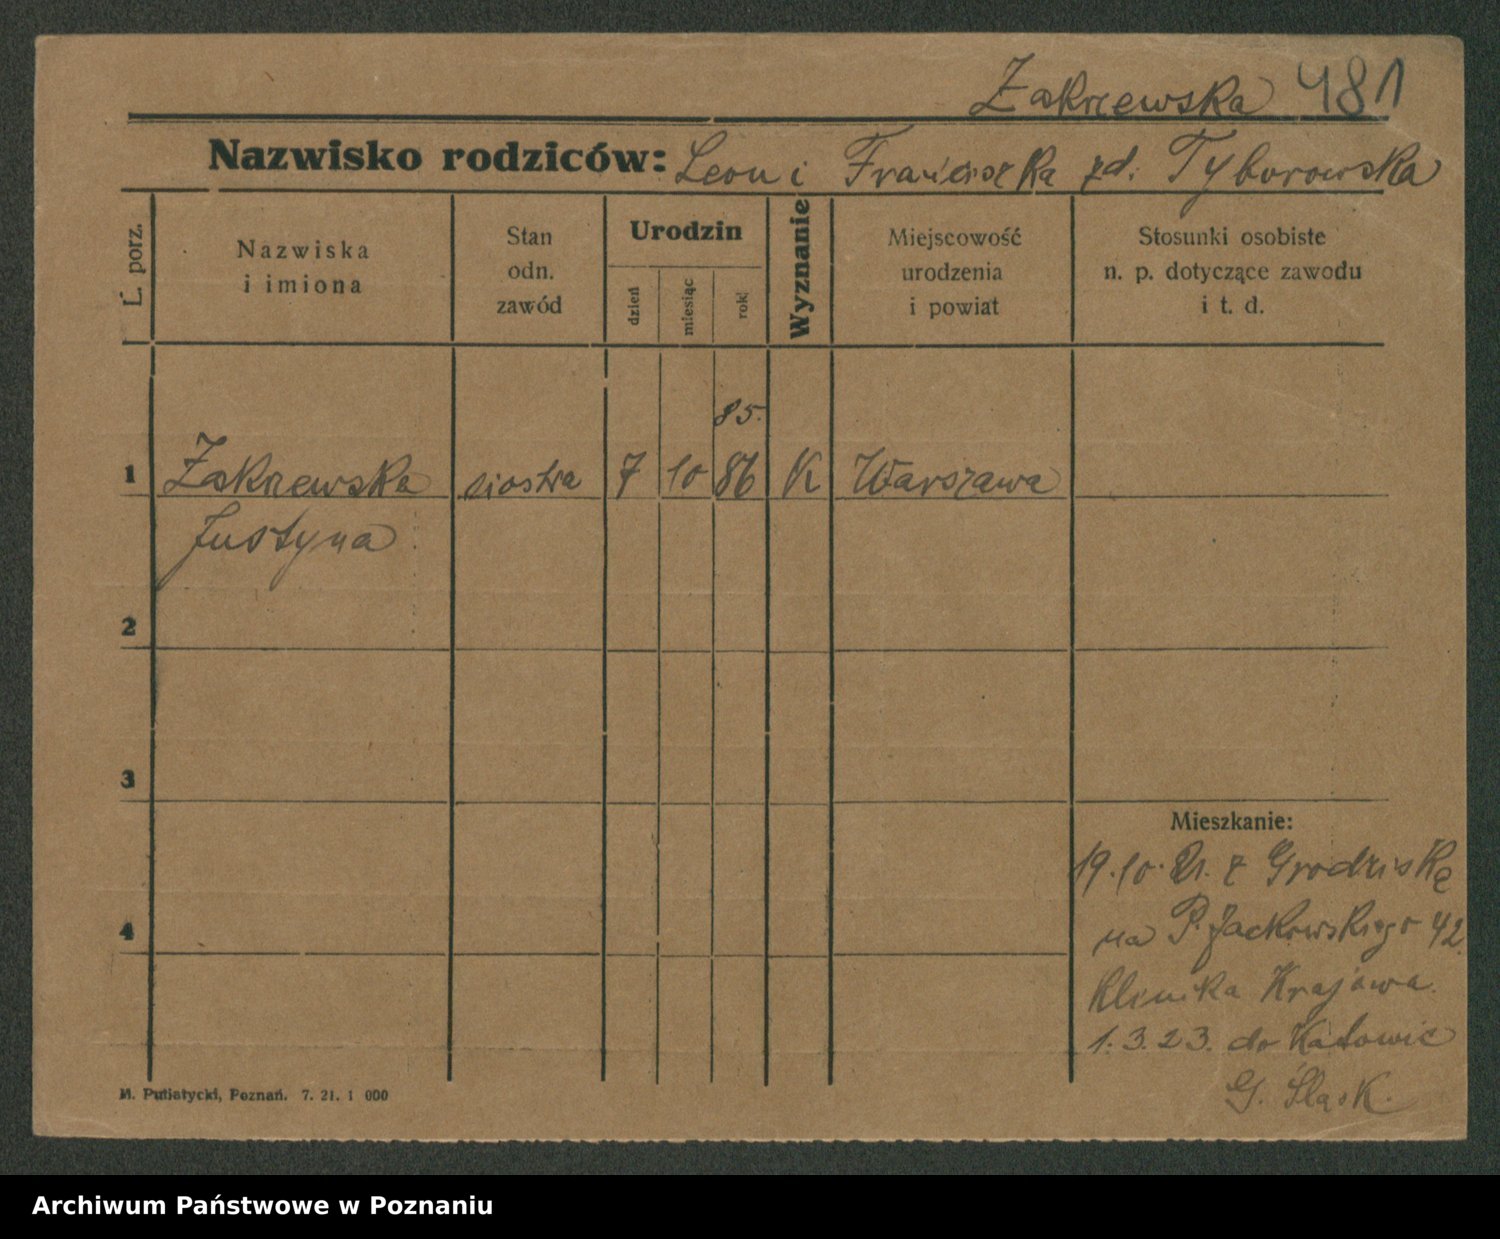 Zakrzewska 481
Nazwisko rodziców: Leon i Franciszka zd. Tyborowska
L. porz.
Nazwiska
i imiona
Stan
odn.
zawód
Urodzin
dzień
miesiąc
rok
Wyznanie
Miejscowość
urodzenia
i powiat
Stosunki osobiste
n. p. dotyczące zawodu
i t. d.
85.
1 Zakrzewska siostra 7 10 86 K Warszawa
Justyna
2
3
Mieszkanie:
19.10. 21. z Grodziska
4
na P. Jackowskiego 42
Klinika Krajowa.
1.3.23. do Katowic
G. Śląsk.
M. Putiatycki, Poznań. 7. 21. 1 000
Archiwum Państwowe w Poznaniu